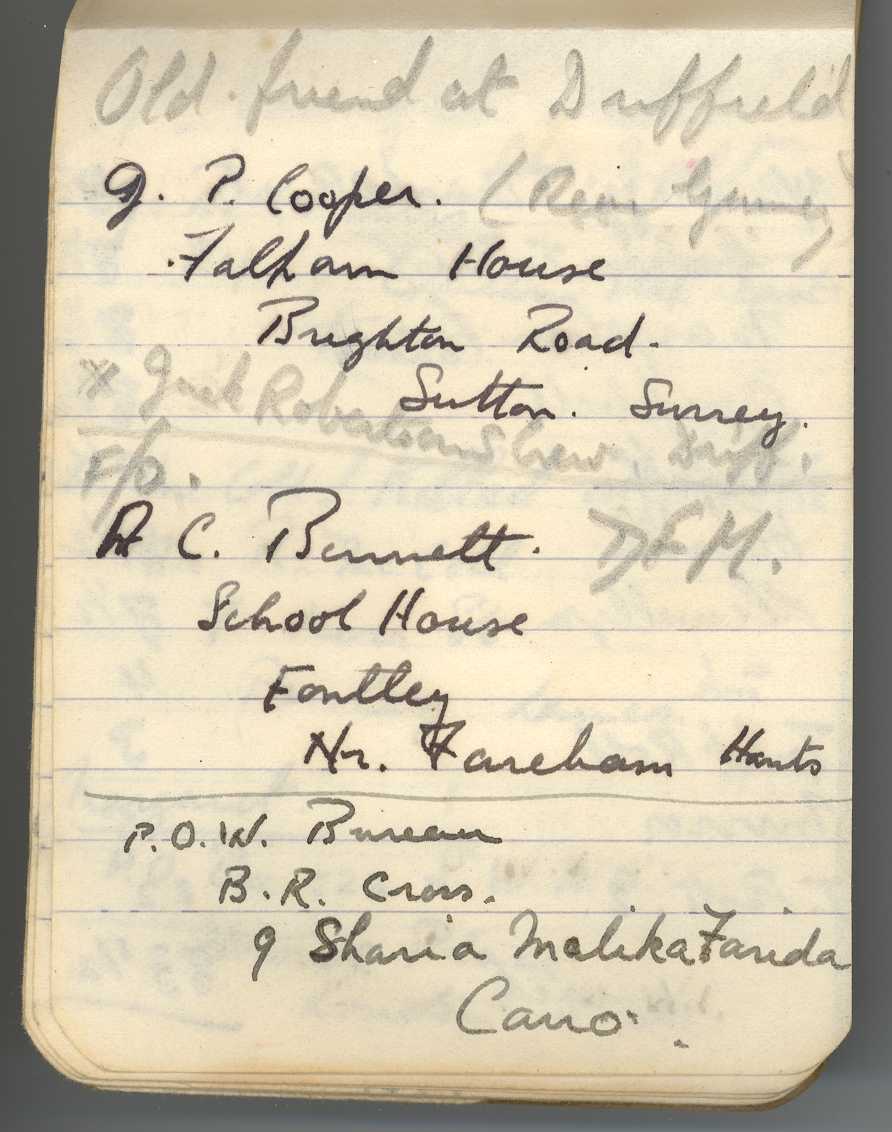 Old friend at Driffield
G. P. Cooper. (Rear Gunner)
Falham House
Brighton Road.
Sutton. Surrey.
x Jack Robertson's Crew, Driff.
F/O.
A C. Bennett. D.F.M.
School House
Fontley
Nr. Fareham Hants
P.O.W. Bureau
B.R. Cross.
9 Sharia Malika Farida
Cairo.